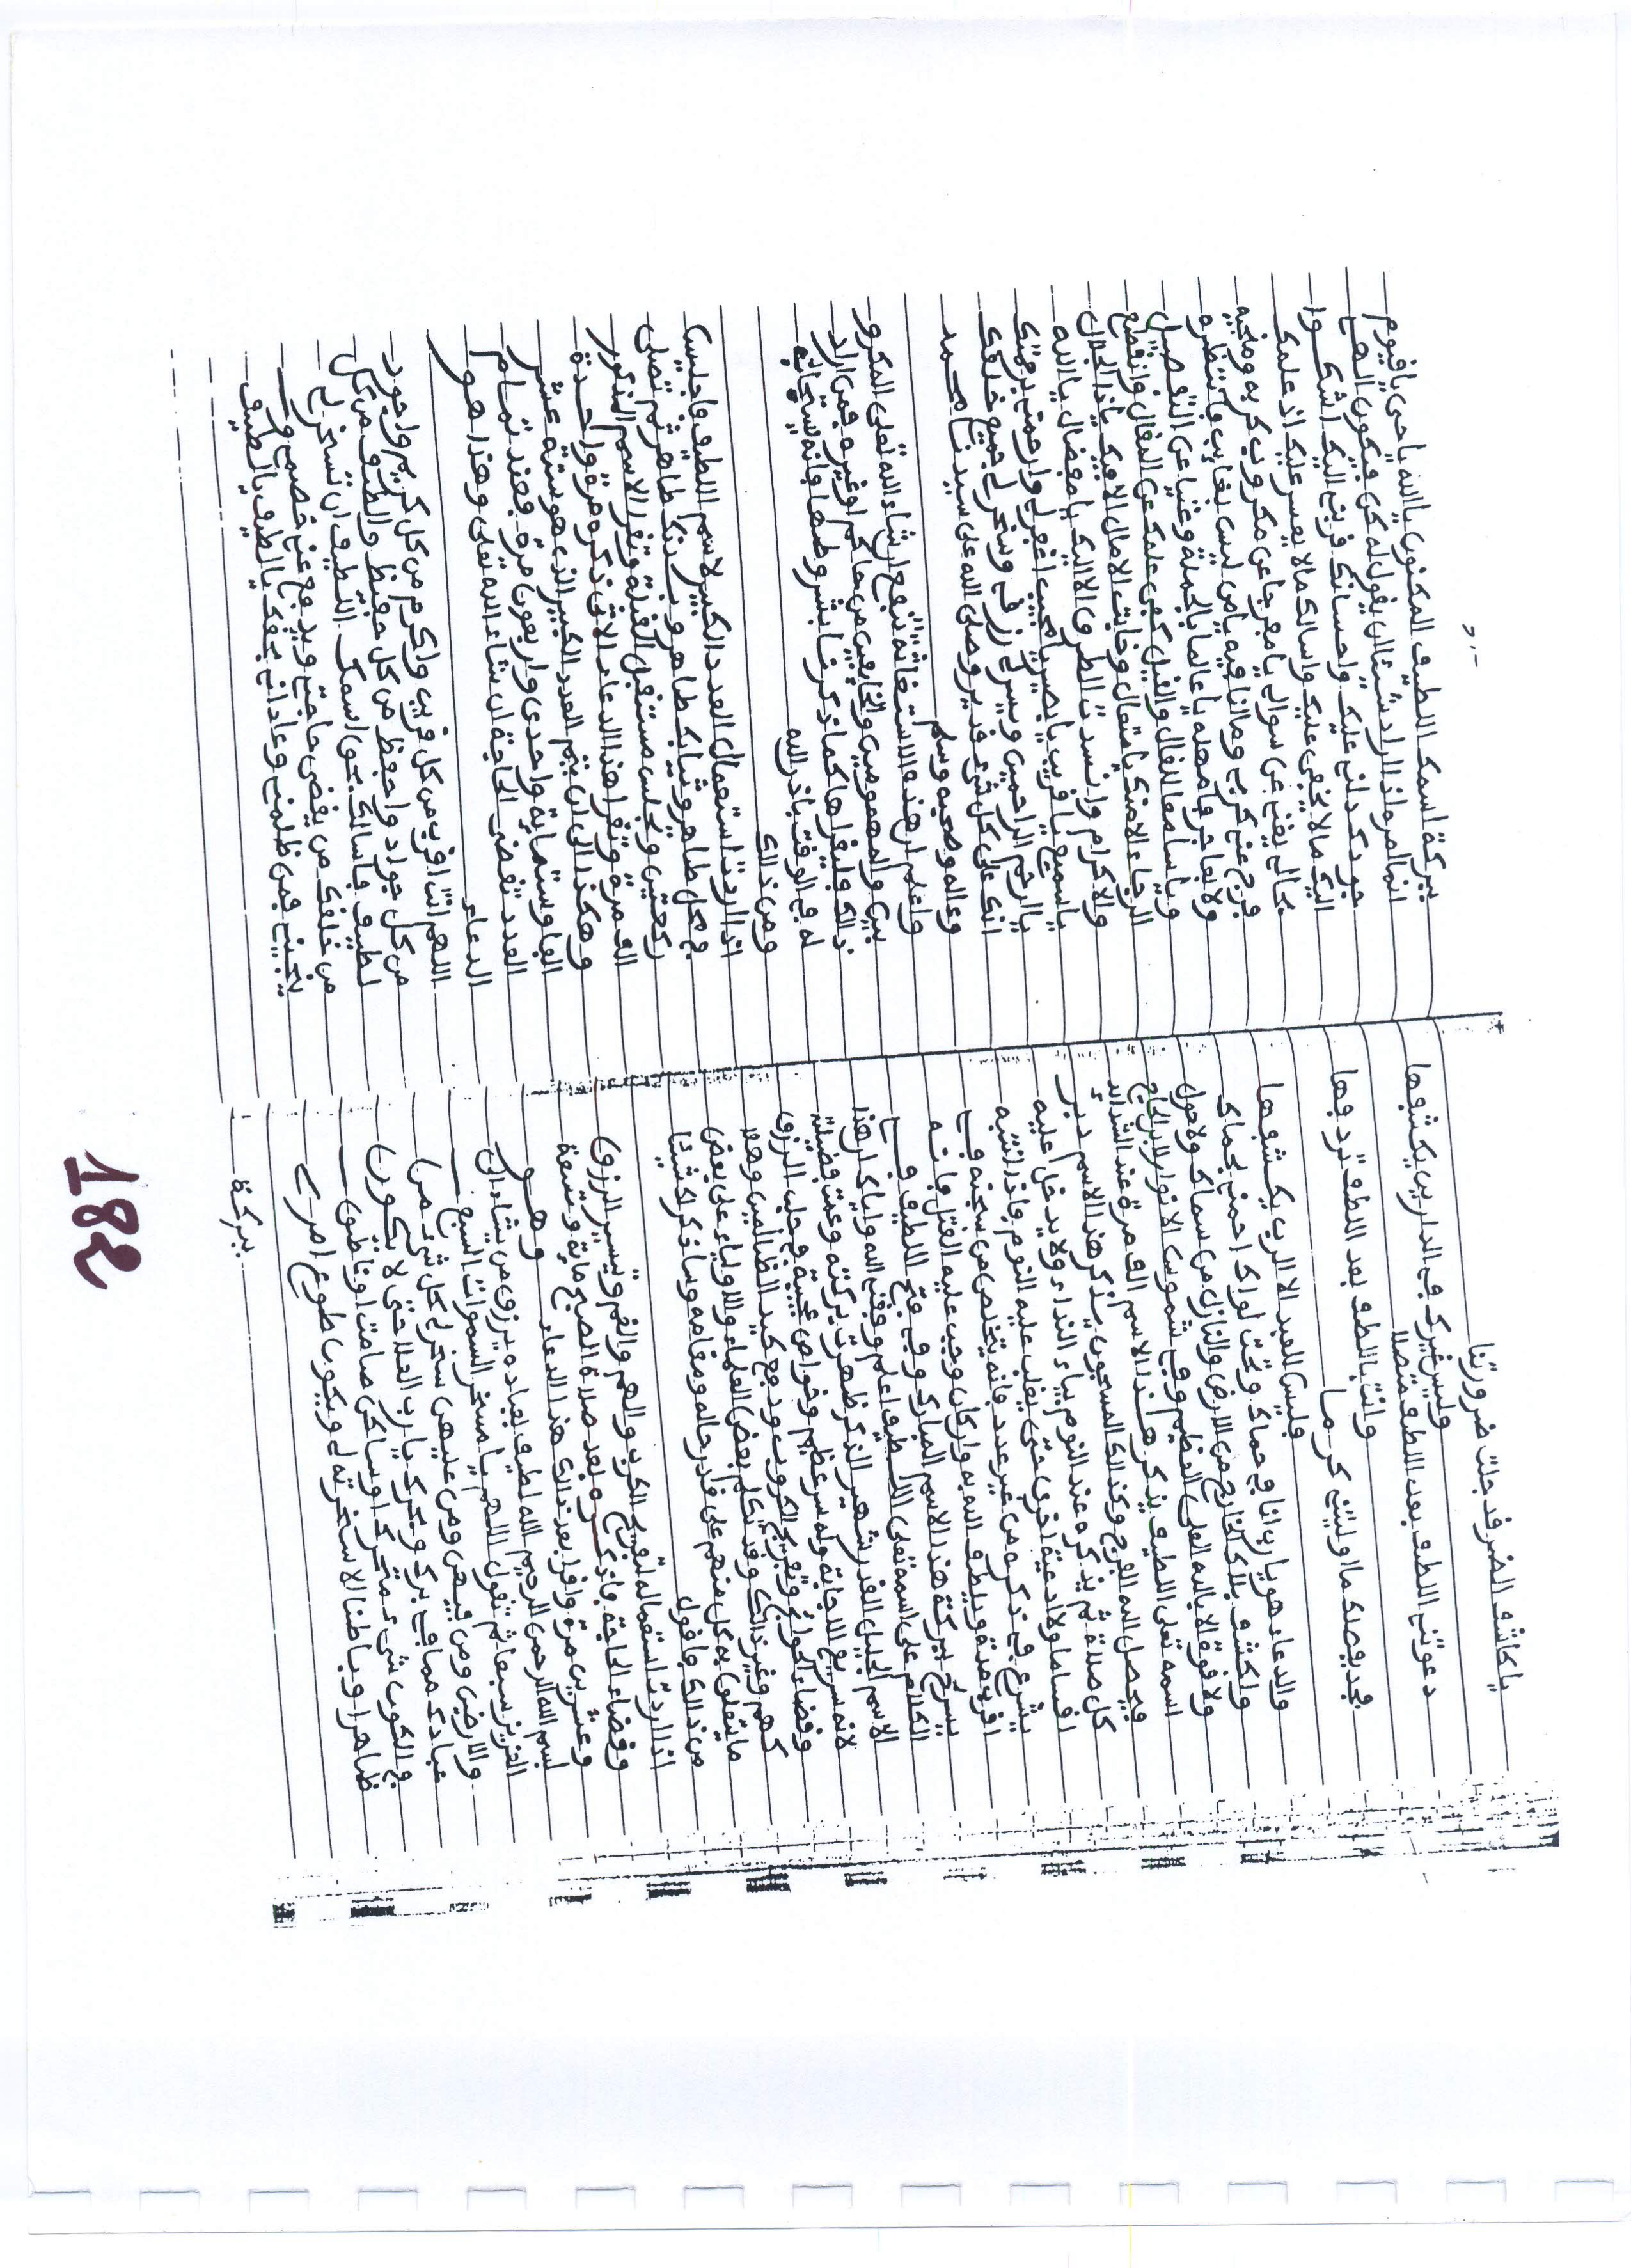 يا كاشف الضر قد جلت ضرورتنا
وليس غيرك في الدارين يكشفها
دعوتني اللطف بعد اللطف متصلا
وانت باللطف بعد اللطف تردفها
فجد بفضلك كما اوليتني كرما
فليس للعبد الا الرب يكشفها
والدعاء هو يا رب انا في حماك وتحت لواك احمني بحماك
واكشف بلاك الخارج من الارض والنازل من سماك ولا حول
ولا قوة الا بالله العلي العظيم وفي شموس الانوار
اسمه تعلى اللطيف يذكر هذا الاسم الف مرة عند الشدايد
فيحصل الله الفرج وكذلك المسجون يذكر هذا الاسم دبر
كل صلاة ثم يذكره عند النوم بياء النداء ولا يدخل عليه
اقساما ولا ادعية اخرى حتى يغلب عليه النوم فاذا انتبه
يشرع في ذكره من غير عدد فانه يتخلص من سجنه في
اقرب مدة ويلطف الله به وان كان وجب عليه القتل فانه
يسرح ببركة هذا الاسم المبارك وفي فتح اللطيف في
الكلام على اسمه تعلى اللطيف اعلم وفقني الله واياك ان هذا
الاسم الجليل القدر شهير الذكر ظهرت بركته وعمت فضيلته
لانه سريع الاجابة وله سر عظيم وخواص عجيبة في جلب الرزق
وقضاء الحوائج وتفريج الكروب ودفع كيد الظالمين وهلا
كهم وغير ذالك وقد تكلم بعض العلماء والاولياء على بعض
ما يتعلق به كل منهم على قدر حاله ومقامه وساذكر لك شيئا
من ذالك فاقول
اذا اردت استعماله لتفريج الكرب والهم والغم وتيسير الرزق
وقضاء الحاجة فاذكره بعد صلاة الصبح ماية وتسعة
وعشرين مرة واقرا بعد ذالك هذا الدعاء وهو
بسم الله الرحمن الرحيم الله لطيف بعباده يرزق من يشاء الى
العزيز سبعا ثم تقول اللهم يا مسخر السموات السبع
والارض ومن فيهن ومن عليهن سخر لي كل شيء من
عبادك مما في برك وبحرك يا رب العلا حتى لا يكون
في الكون شيء متحرك او ساكن صامت او ناطق
ظاهرا وباطنا الا سخرته لي ويكون طوع امري
ببركة
ببركة اسمك اللطيف المكنون يا الله يا حي يا قيوم
انما امره اذا اراد شيئا ان يقول له كن فيكون الهي
جودك دلني عليك واحسانك قربني اليك اشكوا
اليك ما لا يخفى عليك واسالك ما لا يعسر عليك اذ علمك
بحالي يغني عن سوالي يا مفرجا عن مكروب كربه ومنجيه
فرج عني كربي وما انا فيه يا من ليس بغايب فانتظره
ولا بعاجز فامهله يا عالما بالجملة وغنيا عن التفصيل
ويا سامعا القال والقيل كفى علمك عن المقال وانقطع
الرجاء الا منك يا متعال وخابت الامال الا فيك يا ذا الجلال
والاكرام وانسدت الطرق الا اليك يا مفضال يا الله
يا سميع يا قريب يا بصير يا مجيب اغفر لي وارحمني برحمتك
يا ارحم الراحمين ويسر لي رزقي وسخر لي جميع خلقك
انك على كل شيء قدير وصلى الله على سيدنا محمد
وعاله وصحبه وسلم
واعلم ان هذه الاستغاثة تنفع ان شاء الله تعلى المكرو
بين والمهمومين والخايفين من حاكم او غيره فمن اراد
ذالك فليقراها كما ذكرنا بشروطها فانه يستجاب
له في الوقت باذن الله
ومن ذالك
اذا اردت استعمال العدد الكبير لاسم اللطيف فاجلس
في محل طاهر وثيابك طاهر وبدنك طاهر ثم تصلي
ركعتين وتجلس مستقبل القبلة وتقرا الاسم المذكور
الف مرة وتقرا هذا الدعاء الاتي ذكره مرة واحدة
وهكذا الى ان يتم العدد الكبير الذي هو ستة عشر
الفا وستماية واحدى واربعون مرة فعند تمام
العدد تقضى الحاجة ان شاء الله تعلى وهذا هو
الدعاء
اللهم انت اقرب من كل قريب واكرم من كل كريم واجود
من كل جواد واحفظ من كل حفيظ والطف من كل
لطيف فاسالك بحق اسمك اللطيف ان تسخر لي
من خلقك من يقضي حاجتي ويدفع عني خصمي و
ينجيني ممن ظلمني وعاداني بحقك يا لطيف يا لطيف
182